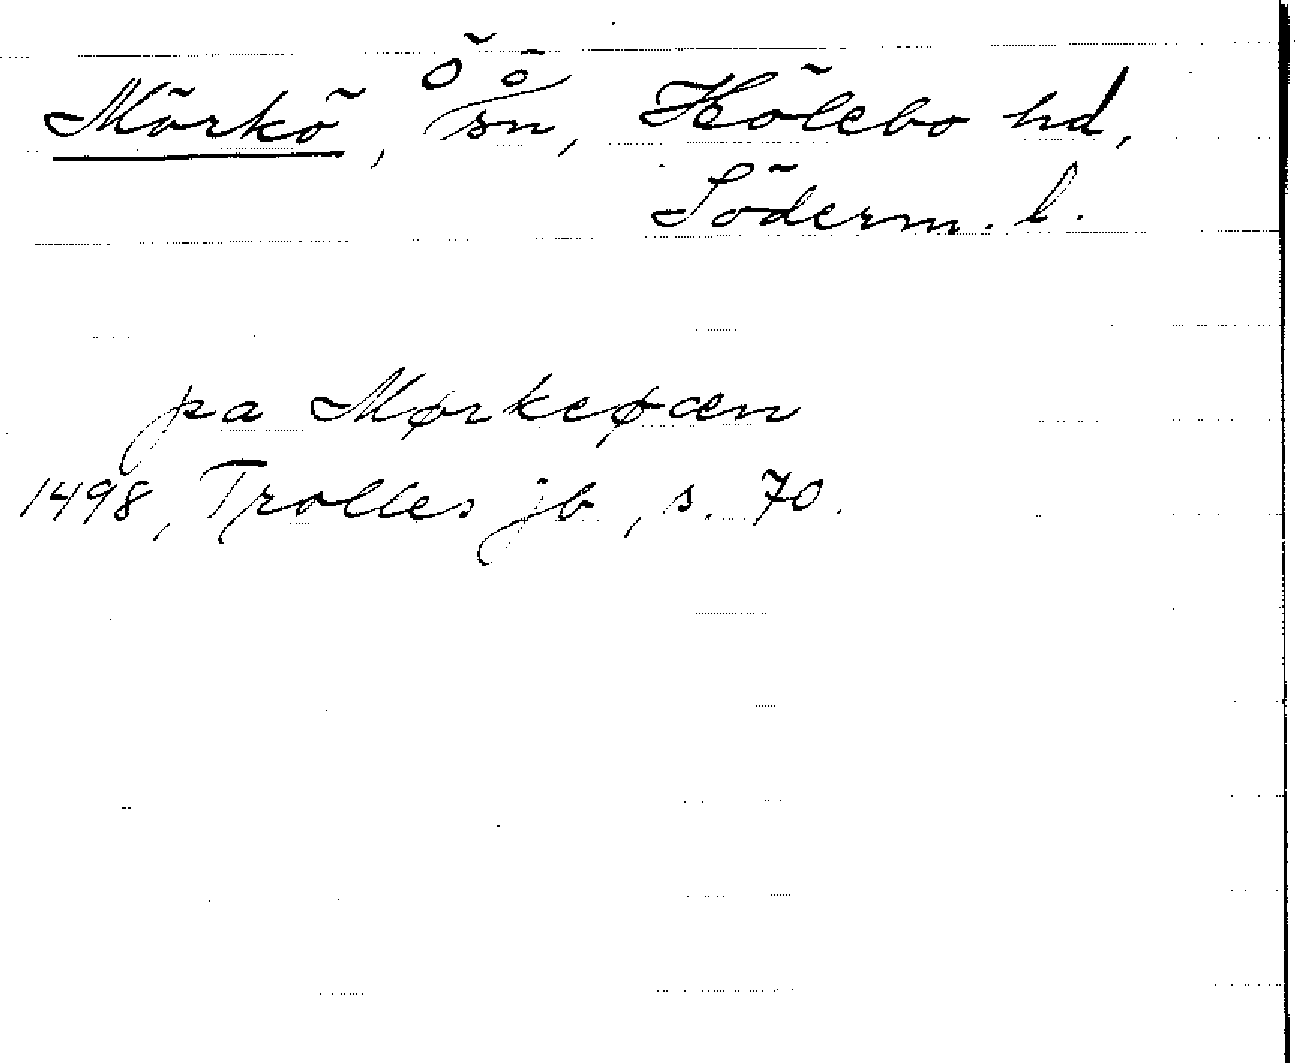 Mörkö, Ö ö/sn, Hölebo hd,
Söderm. l.
pa Mørkeøæn
1498, Trolles jb, s. 70.